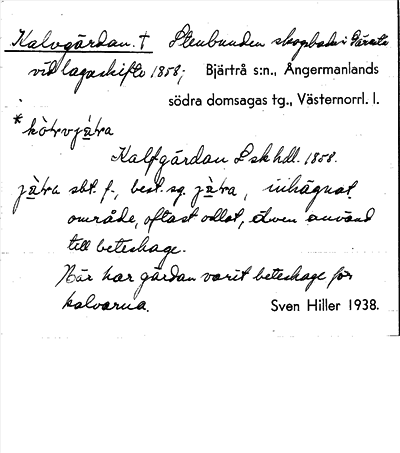 Kalvgärdan. † Stenbunden skogbacke i Gårele
vid lagaskifte 1858; Bjärtrå s:n., Ångermanlands
södra domsagas tg., Västernorrl. l.
* kòtrvjä̀ra
Kalfgärdan L sk hdl. 1858.
jä̀ra sbt. f., best. sg. jä̀ra, inhägnat
område, oftast odlat, även använd
till beteshage.
Här har gärdan varit beteshage för
kalvarna. Sven Hiller 1938.